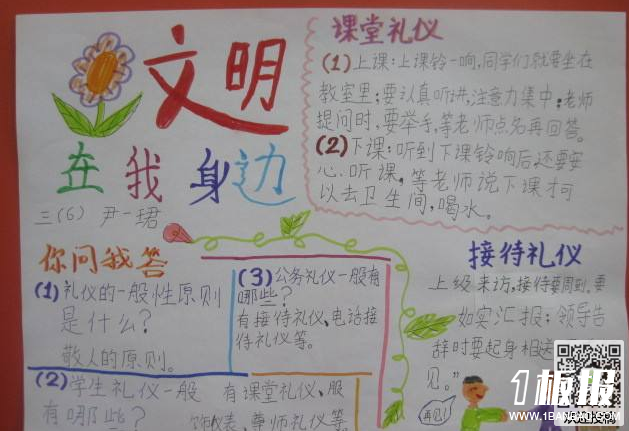 文明
在我身边
三(6) 尹一珺
课堂礼仪
(1)上课:上课铃一响,同学们就要坐在
教室里;要认真听讲,注意力集中;老师
提问时,要举手,等老师点名再回答。
(2)下课:听到下课铃响后,还要安
心听课,等老师说下课才可
以去卫生间,喝水。
你问我答
(1)礼仪的一般性原则
是什么?
敬人的原则。
(2)学生礼仪一般
有哪些?
有课堂礼仪、服
饰仪表、尊师礼仪等
(3)公务礼仪一般有
哪些?
有接待礼仪、电话接
待礼仪等。
接待礼仪
上级来访,接待要周到。
如实汇报;领导告
辞时要起身相送
见。”
再见!
1板报
WWW.1BANBAO.COM
欢迎投稿